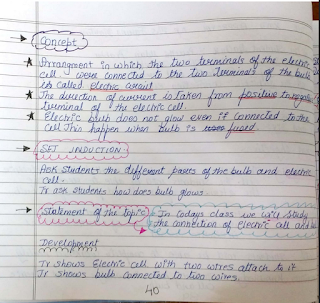 Concept
Arrangment in which the two terminals of the electric
cell were connected to the two terminals of the bulb
is called electric circuit
The direction of current is taken from positive to negative
terminal of the electric cell.
Electric bulb does not glow even if connected to the
cell. This happen when bulb is fused.
SET INDUCTION
Ask students the different parts of the bulb and electric
cell.
Tr ask students how does bulb glows
Statement of the topic :- In todays class we will study
the connection of electric cell and
Development
Tr shows Electric cell with two wires attach to it
Tr shows bulb connected to two wires.
40